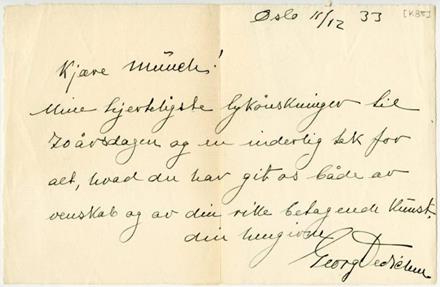 Oslo 11/12 33 [K85]
Kjære Münch!
Mine hjerteligste lykønskninger til
70 årsdagen og en inderlig tak for
alt, hvad du har git os både av
venskab og av din rike betagende kunst.
din hengivne
Georg Dedichen